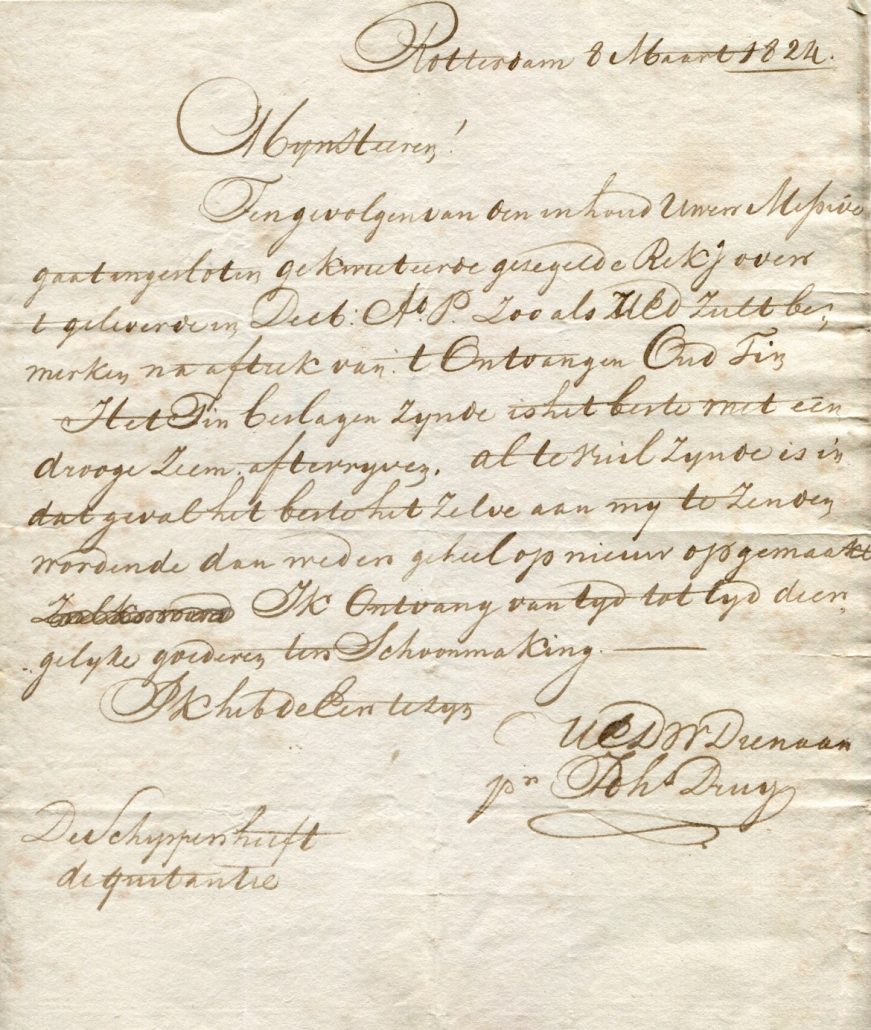 Rotterdam 8 Maart 1824.
MynHeeren!
Tengevolgen van den inhoud Uwer Missive
gaat ingesloten gekwiteerde gezegelde Rek over
t geleverde in Decb: Ao. P. Zoo als UEd Zult be,
merken na aftrek van t Ontvangen Oud Tin
Het Tin beslagen Zynde is het beste met een
drooge Zeem afteryven. al te vuil Zynde is in
dat geval het beste het Zelve aan my te Zenden
wordende dan weder geheel op nieuw opgemaakt
Ik Ontvang van tyd tot tyd dier,
gelyke goederen ter Schoonmaking.
Ik heb de Eer te zyn
UEDW Dienaar
pr Johs Druy
De Schipper heeft
de quitantie